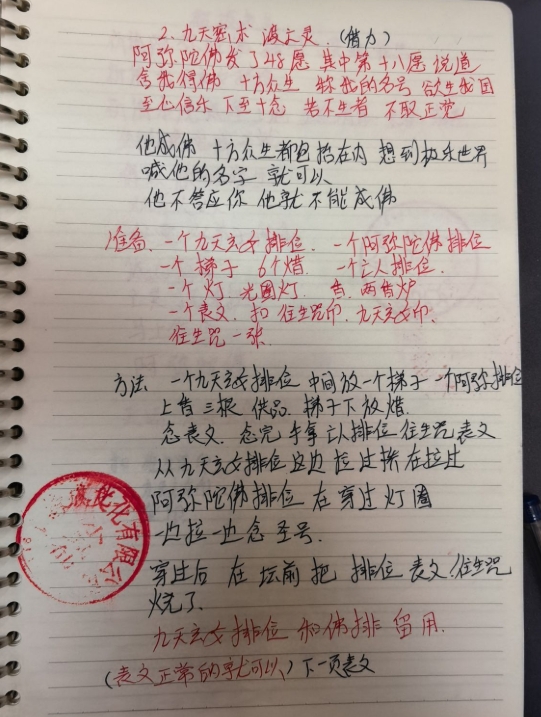 2、九天密术 渡亡灵.(借力)
阿弥陀佛发了48愿 其中第十八愿说道
舍我得佛 十方众生 称我的名号 欲生我国
至心信乐 下至十念 若不生者 不取正觉
他成佛 十方众生都包括在内 想到极乐世界
喊他的名字 就可以
他不答应你 他就不能成佛
准备、一个九天玄女排位、一个阿弥陀佛排位
一个梯子 6个腊、一个亡人排位、
一个灯、光圈灯、香、两香炉
一个表文、和 往生咒印、九天玄女印、
往生咒一张、
方法 一个九天玄女排位 中间放一个梯子 一个阿弥排位
上香三根 供品、梯子下放腊、
念表文、念完 手拿亡人排位 往生咒表文
从九天玄女排位这边 拉过 在拉过
阿弥陀佛排位 在穿过灯圈
一边拉一边念圣号、
穿过后 在坛前把 排位 表文 往生咒
烧了、
九天玄女排位 和佛排 留用、
(表文正常的就可以)下一页表文
化有限公